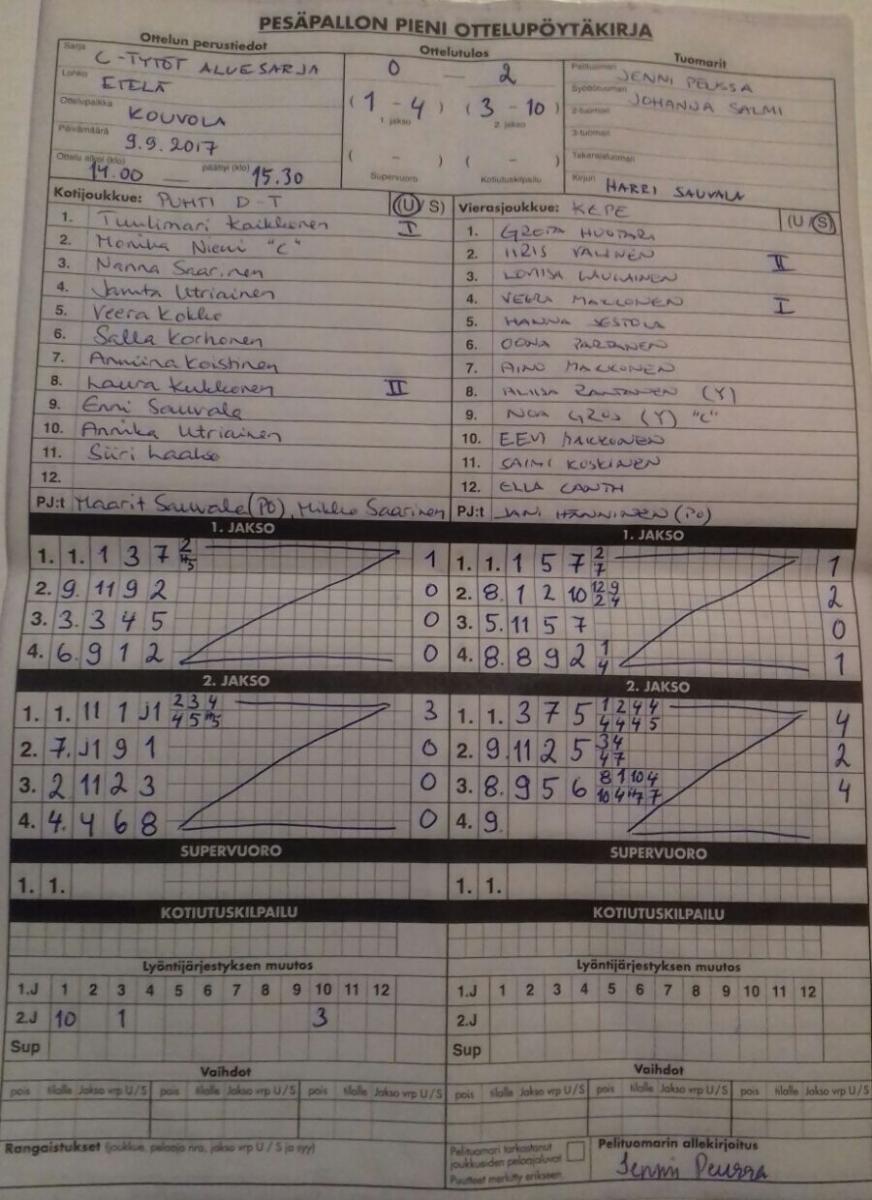 PESÄPALLON PIENI OTTELUPÖYTÄKIRJA
Ottelun perustiedot
Ottelutulos
Tuomarit
Sarja C-TYTÖT ALUESARJA
Lohko ETELÄ
Ottelupaikka KOUVOLA
Päivämäärä 9.9.2017
Ottelu alkoi (klo) 14.00 — päättyi (klo) 15.30
0 — 2
(1 - 4) (3 - 10)
1. jakso 2. jakso
( - ) ( - )
Supervuoro Kotiutuskilpailu
Pelituomari JENNI PEUSSA
Syöttötuomari JOHANNA SALMI
2-tuomari
3-tuomari
Takarajatuomari
Kirjuri HARRI SAUVALA
Kotijoukkue: PUHTI D-T (U/S)
1. Tuulimari Kaikkonen I
2. Monika Niemi "C"
3. Nanna Saarinen
4. Jamita Utriainen
5. Veera Kokko
6. Salla Korhonen
7. Anniina Koistinen
8. Laura Kukkonen II
9. Enni Sauvala
10. Annika Utriainen
11. Siiri Laakso
12.
PJ:t Maarit Sauvala (PO), Mikko Saarinen
Vierasjoukkue: KEPE (U/S)
1. GRETA HUOTARI
2. IIRIS VALINEN II
3. LOVIISA
4. VEERA MAKKONEN I
5. HANNA SESTOLA
6. OONA PARTANEN
7. AINO MAKKONEN
8. ALIISA RANTANEN (Y)
9. NOVA GROS (Y) "C"
10. EEVI MAKKONEN
11. SAIMI KOSKINEN
12. ELLA CANTH
PJ:t JANI HÄNNINEN (PO)
1. JAKSO
1. 1. 1 3 7 2 1
2. 9. 11 9 2 0
3. 3. 3 4 5 0
4. 6. 9 1 2 0
1. JAKSO
1. 1. 1 5 7 2 7 1
2. 8. 1 2 10 12 9 2 4 2
3. 5. 11 5 7 0
4. 8. 8 9 2 1 4 1
2. JAKSO
1. 1. 11 1 J1 2 3 4 4 5 3
2. 7. J1 9 1 0
3. 2 11 2 3 0
4. 4. 4 6 8 0
2. JAKSO
1. 1. 3 7 5 1 2 4 4 4 4 4 5 4
2. 9. 11 2 5 3 4 4 7 2
3. 8. 9 5 6 8 1 10 4 10 4 7 4
4. 9.
SUPERVUORO
1. 1.
SUPERVUORO
1. 1.
KOTIUTUSKILPAILU
KOTIUTUSKILPAILU
Lyöntijärjestyksen muutos
1.J 1 2 3 4 5 6 7 8 9 10 11 12
2.J 10 1 3
Sup
Lyöntijärjestyksen muutos
1.J 1 2 3 4 5 6 7 8 9 10 11 12
2.J
Sup
Vaihdot
pois tilalle Jakso vrp U/S pois tilalle Jakso vrp U/S pois tilalle Jakso vrp U/S
Vaihdot
pois tilalle Jakso vrp U/S pois tilalle Jakso vrp U/S pois tilalle Jakso vrp U/S
Rangaistukset (joukkue, pelaaja nro, jakso vrp U / S ja syy)
Pelituomari tarkastanut
joukkueiden pelaajaluvat
Puutteet merkitty erikseen.
Pelituomarin allekirjoitus
Jenni Peussa